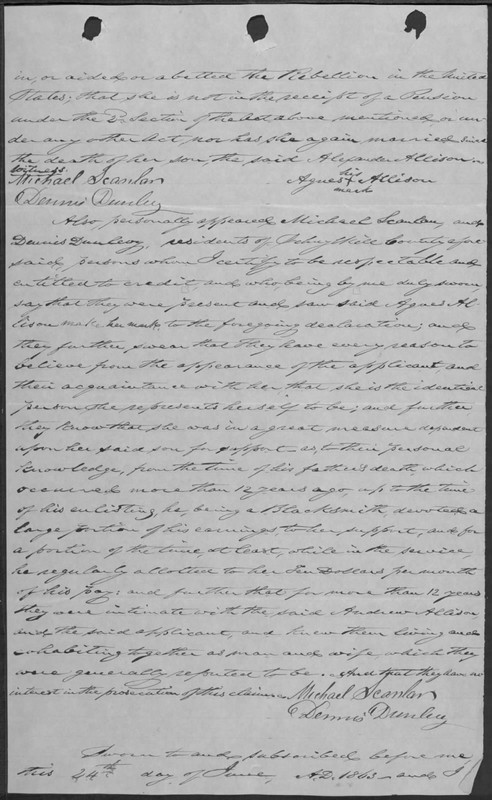 in, or aided or abetted the Rebellion in the United
States; that she is not in the receipt of a Pension
under the 2d Section of the Act above mentioned or un-
der any other Act, nor has she again married since
the death of her son, the said Alexander Allison
Witness.
Michael Scanlan Agnes + Allison
his
mark
Dennis Dunlevy
Also, personally appeared Michael Scanlan, and
Dennis Dunlevy, residents of County afore
said, persons whom I certify to be respectable and
entitled to credit, and who being by me duly sworn
say that they were present and saw said Agnes Al
lison make her mark to the foregoing declaration; and
they further swear that they have every reason to
believe from the appearance of the applicant and
their acquaintance with her that she is the identical
person she represents herself to be; and further
they know that she was in a great measure dependent
upon her said son for support as, to their personal
knowledge, from the time of his father's death, which
occurred more than 12 years ago, up to the time
of his enlisting, he, being a Blacksmith, devoted a
large portion of his earnings to her support, and for
a portion of the time, at least, while in the service,
he regularly allotted to her Ten Dollars per month
of his pay: and further that for more than 12 years
they were intimate with the said Andrew Allison,
and the said applicant, and knew them living and
cohabiting together as man and wife, which they
were generally reputed to be. And that they have no
interest in the prosecution of this claim.
Michael Scanlan
Dennis Dunlevy
Sworn to and subscribed before me
this 24th day of June, A.D. 1863 and I